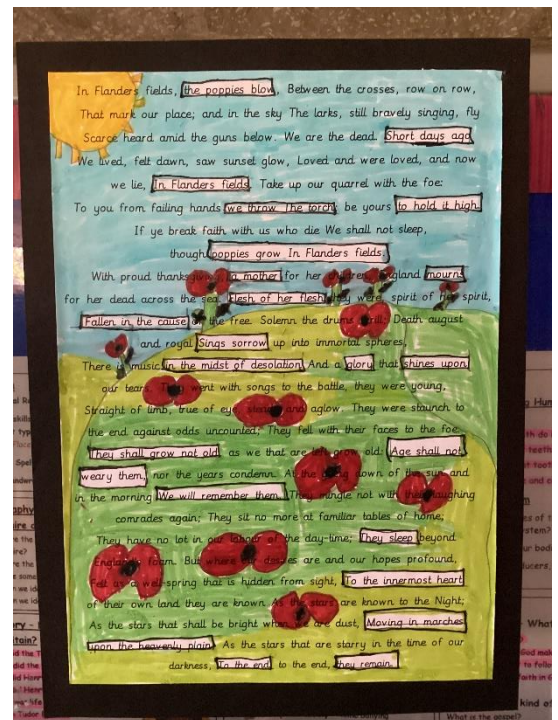 In Flanders fields, the poppies blow, Between the crosses, row on row,
That mark our place; and in the sky The larks, still bravely singing, fly
Scarce heard amid the guns below. We are the dead. Short days ago
We lived, felt dawn, saw sunset glow, Loved and were loved, and now
we lie, In Flanders fields. Take up our quarrel with the foe:
To you from failing hands we throw The torch; be yours to hold it high.
If ye break faith with us who die We shall not sleep,
though poppies grow In Flanders fields.
With proud thanksgiving, a mother for her children, England mourns
for her dead across the sea. Flesh of her flesh they were, spirit of her spirit,
Fallen in the cause of the free. Solemn the drums thrill; Death august
and royal Sings sorrow up into immortal spheres,
There is music in the midst of desolation And a glory that shines upon
our tears. They went with songs to the battle, they were young,
Straight of limb, true of eye, steady and aglow. They were staunch to
the end against odds uncounted; They fell with their faces to the foe.
They shall grow not old, as we that are left grow old: Age shall not
weary them, nor the years condemn. At the going down of the sun and
in the morning We will remember them. They mingle not with their laughing
comrades again; They sit no more at familiar tables of home;
They have no lot in our labour of the day-time; They sleep beyond
England's foam. But where our desires are and our hopes profound,
Felt as a well-spring that is hidden from sight, To the innermost heart
of their own land they are known As the stars are known to the Night;
As the stars that shall be bright when we are dust, Moving in marches
upon the heavenly plain, As the stars that are starry in the time of our
darkness, To the end, to the end, they remain.